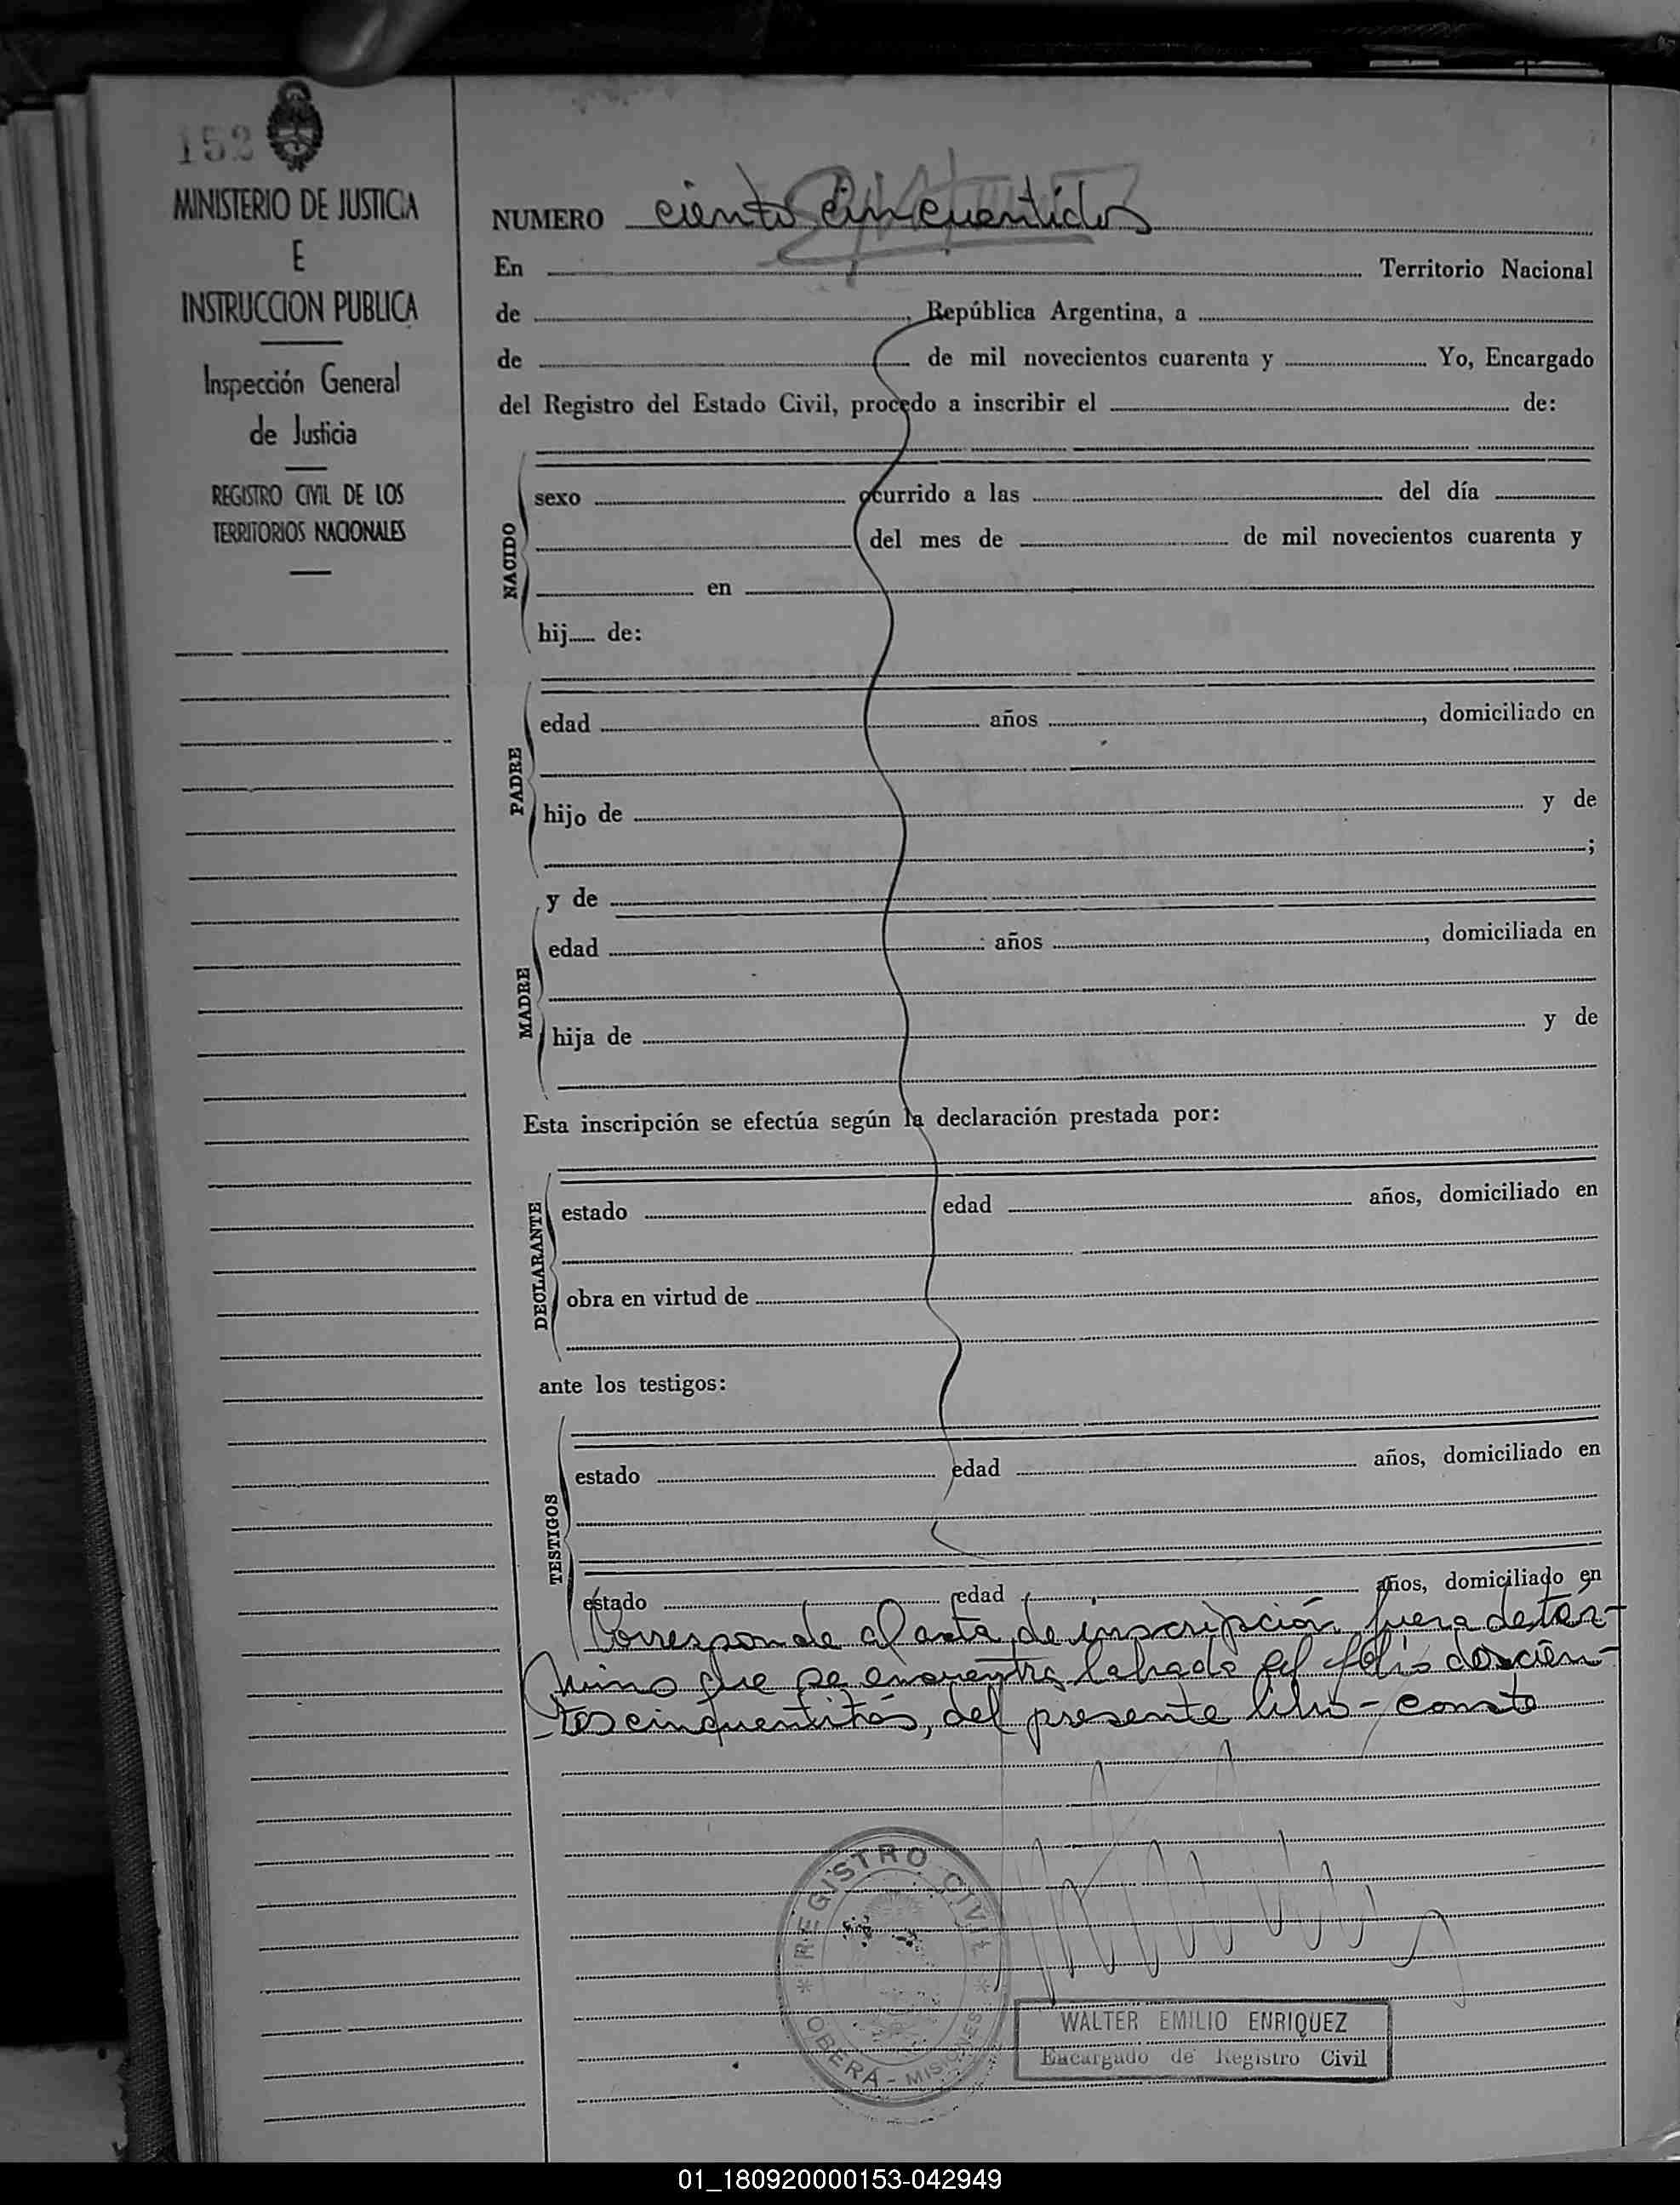 152
MINISTERIO DE JUSTICIA
E
INSTRUCCION PUBLICA
Inspección General
de Justicia
REGISTRO CIVIL DE LOS
TERRITORIOS NACIONALES
NUMERO ciento cincuentidos
En Territorio Nacional
de , República Argentina, a
de de mil novecientos cuarenta y Yo, Encargado
del Registro del Estado Civil, procedo a inscribir el de:
NACIDO
sexo ocurrido a las del día
del mes de de mil novecientos cuarenta y
en
hij...... de:
PADRE
edad años , domiciliado en
hijo de y de
;
y de
MADRE
edad años , domiciliada en
hija de y de
Esta inscripción se efectúa según la declaración prestada por:
DECLARANTE
estado edad años, domiciliado en
obra en virtud de
ante los testigos:
TESTIGOS
estado edad años, domiciliado en
estado edad años, domiciliado en
Corresponde al acta de inscripción fuera de tér-
mino que se encuentra labrada al folio doscien-
-tos cinquentitrés, del presente libro - conste
REGISTRO CIVIL
OBERÁ - MISIONES
WALTER EMILIO ENRIQUEZ
Encargado de Registro Civil
01_180920000153-042949